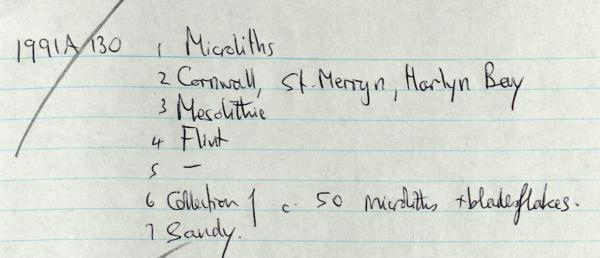 1991A/130 1 Microliths
2 Cornwall, St. Merryn, Harlyn Bay
3 Mesolithic
4 Flint
5 —
6 Collection of c. 50 microliths + bladeflakes.
7 Sandy.